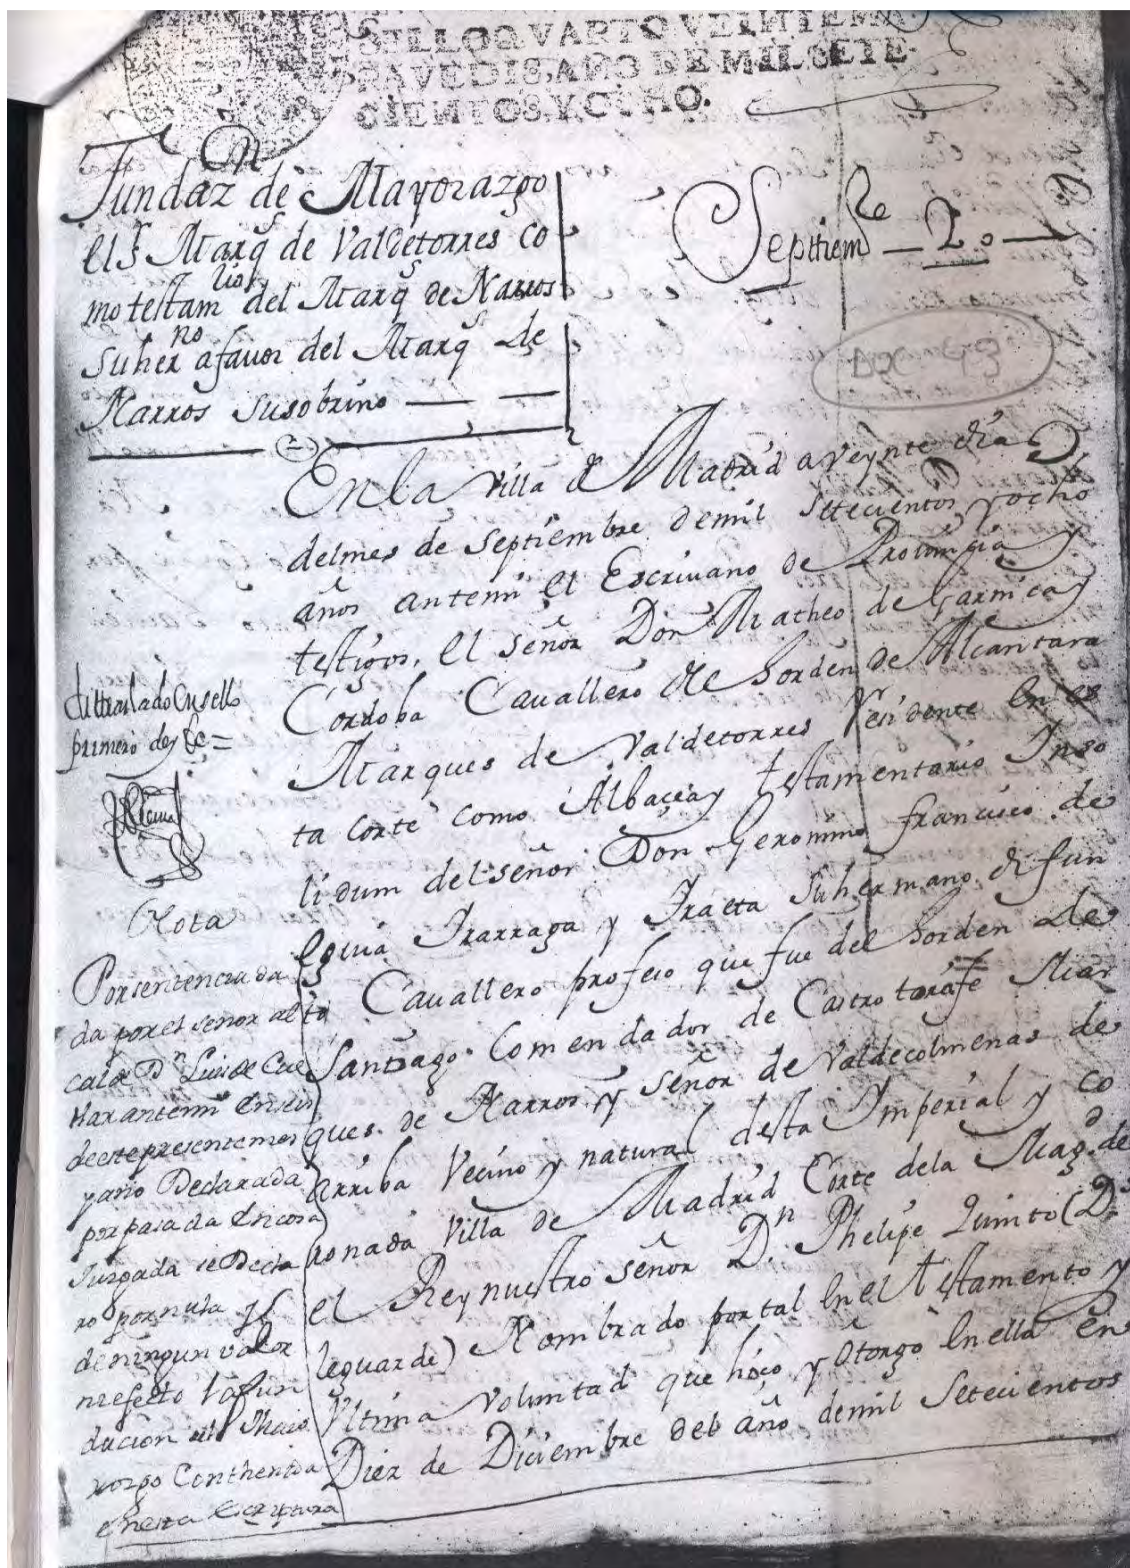 SELLO QVARTO, VEINTE MA
RAVEDIS, AÑO DE MIL SETE
CIENTOS Y OCHO.
Fundaz.on de Mayorazgo
el S.r Marq.s de Valdetorres co
mo testam.rio del Marq.s de Narros
su her.no a favor del Marq.s de
Narros su sobrino
Septiem.re 20
Doc 43
En la villa de Madrid a veynte dia
del mes de Septiembre de mil setecientos y ocho
años antemi el Escrivano de Provinçia y
testigos, el señor Don Matheo de Garnica y
Cordoba Cavallero del horden de Alcantara
Marques de Valdetorres residente en es
ta Corte como Albaçea y testamentario Inso
lidum del señor Don Geronimo françisco de
Eguia Irarraga y Iraeta Su hermano difun
to Cavallero profeso que fue del horden de
Santiago Comendador de Castrotorafe Mar
ques de Narros y señor de Valdecolmenas de
arriba Vecino y natural desta Imperial y co
ronada Villa de Madrid Corte de la Mag.d de
el Rey nuestro señor D.n Phelipe Quinto (D.s
le guarde) Nombrado por tal en el testamento y
Ultima Voluntad que hiço y otorgo en ella en
Diez de Diciembre del año de mil Setecientos
di traslado en sello
primero doy fe =
Nota
Por sentencia da
da por el señor al
calde D.n Luis de Cue
llar antemi en
de este presente mes
y año Declarada
por pasada en cosa
Juzgada se Decla
ro por nula y
de ningun valor
ni efecto la fun
dacion del Maio
razgo Conthenida
en esta escriptura